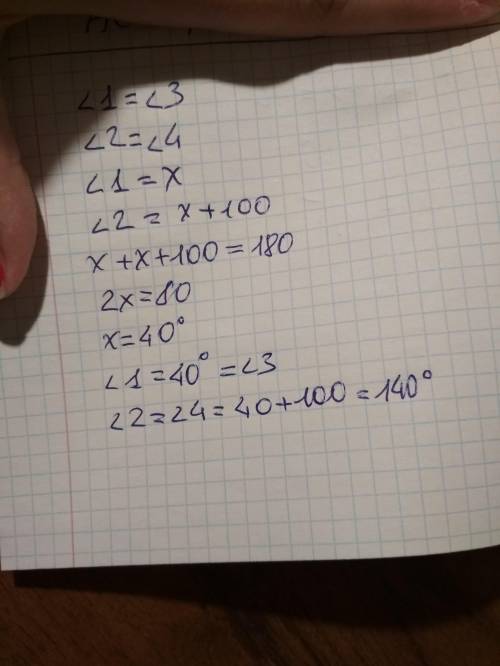 ∠1=∠3
∠2=∠4
∠1=x
∠2=x+100
x+x+100=180
2x=80
x=40°
∠1=40°=∠3
∠2=∠4=40+100=140°